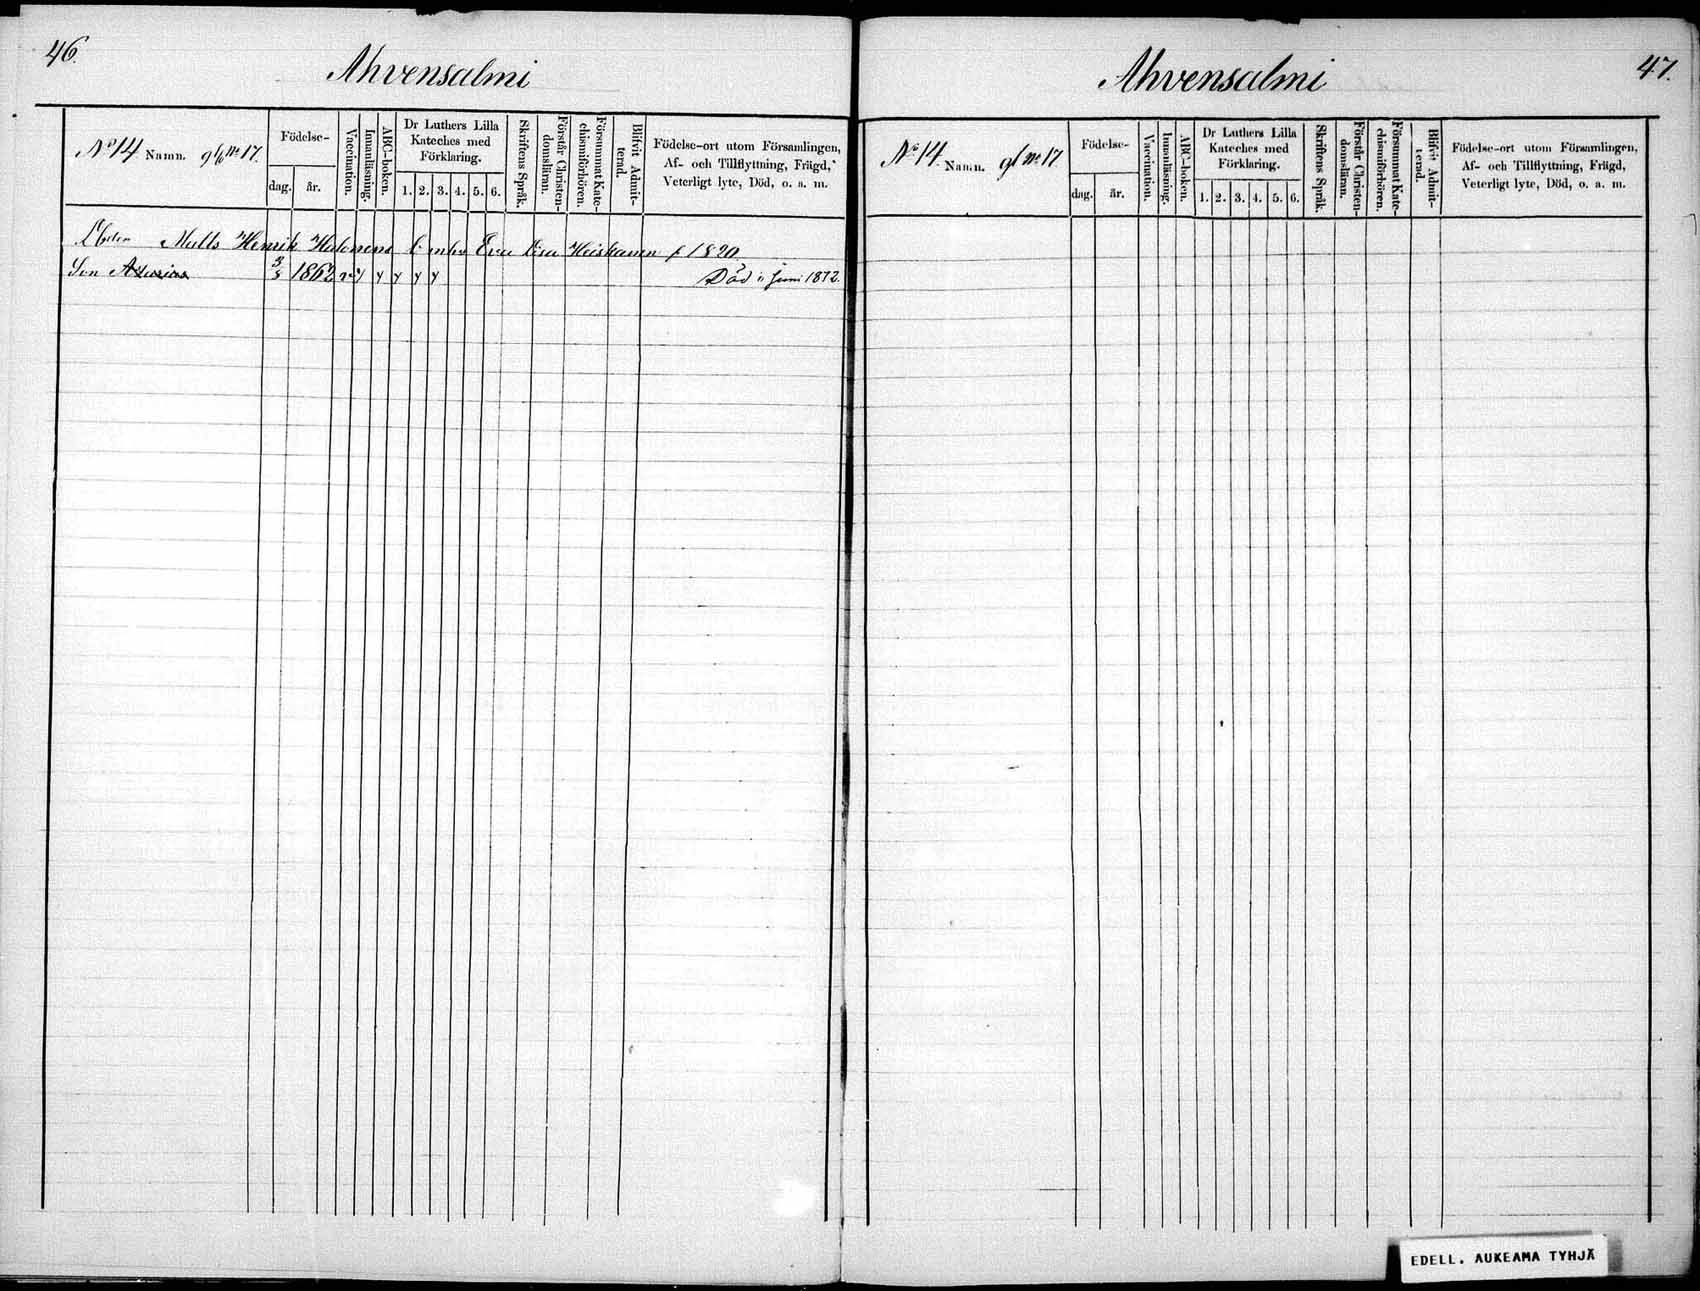 46.
Ahvensalmi
No 14 Namn. gl No 17.
Födelse-
dag. år.
Vaccination.
Innanläsning.
ABC-boken.
Dr Luthers Lilla
Kateches med
Förklaring.
1. 2. 3. 4. 5. 6.
Skriftens Språk.
Förstår Christen-
domsläran.
Försummat Kate-
chismiförhören.
Blifvit Admit-
terad.
Födelse-ort utom Församlingen,
Af- och Tillflyttning, Frägd,
Veterligt lyte, Död, o. a. m.
Matts Henrik Halonens Eva Lisa Heiskanen f 1820
Son 1862 Död i Juni 1872.
Ahvensalmi
47.
No 14. Namn. gl No 17
Födelse-
dag. år.
Vaccination.
Innanläsning.
ABC-boken.
Dr Luthers Lilla
Kateches med
Förklaring.
1. 2. 3. 4. 5. 6.
Skriftens Språk.
Förstår Christen-
domsläran.
Försummat Kate-
chismiförhören.
Blifvit Admit-
terad.
Födelse-ort utom Församlingen,
Af- och Tillflyttning, Frägd,
Veterligt lyte, Död, o. a. m.
EDELL. AUKEAMA TYHJÄ